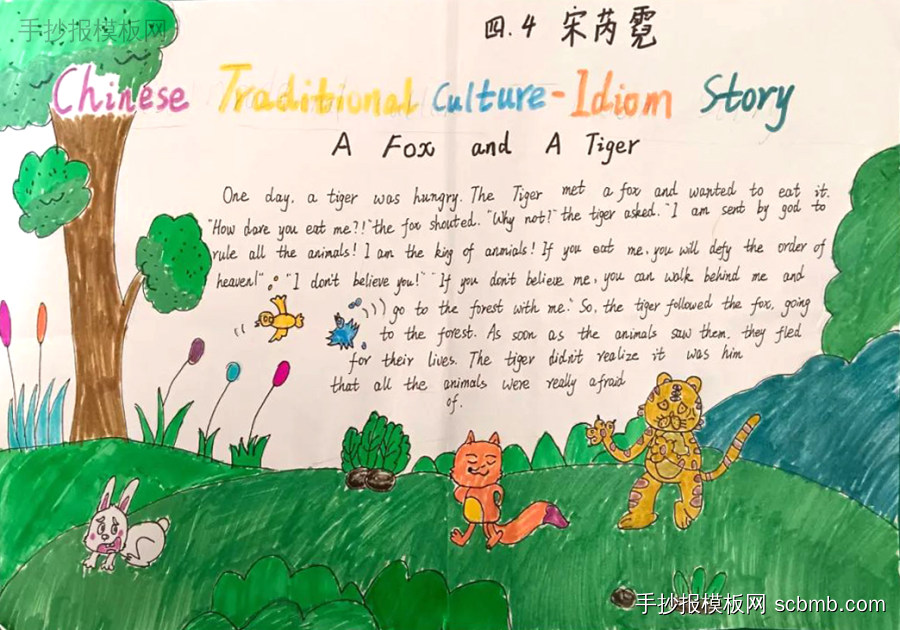 手抄报模板网
四.4 宋芮霓
Chinese Traditional Culture-Idiom Story
A Fox and A Tiger
One day, a tiger was hungry. The Tiger met a fox and wanted to eat it.
"How dare you eat me?!" the fox shouted. "Why not?" the tiger asked. "I am sent by god to
rule all the animals! I am the king of anmials! If you eat me, you will defy the order of
heaven!" "I don't believe you!" "If you don't believe me, you can walk behind me and
go to the forest with me." So, the tiger followed the fox, going
to the forest. As soon as the animals saw them, they fled
for their lives. The tiger didn't realize it was him
that all the animals were really afraid
of.
手抄报模板网 scbmb.com